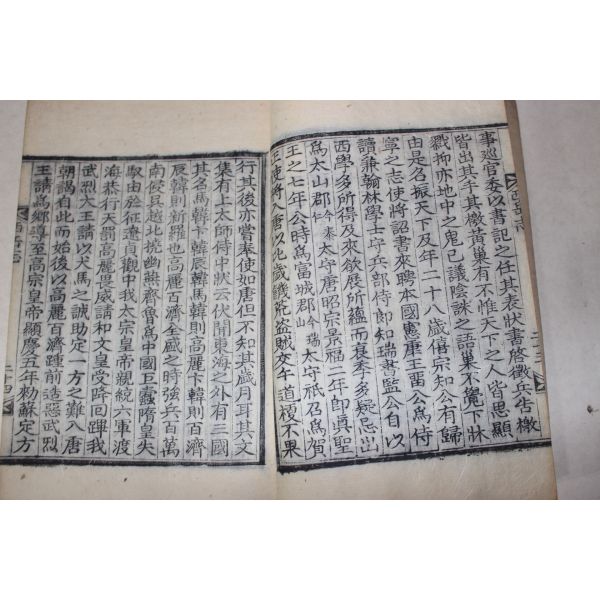 事巡官委以書記之任其表狀書啓徵兵告檄
皆出其手其檄黃巢有不惟天下之人皆思顯
戮抑亦地中之鬼已議陰誅之語巢不覺下牀
由是名振天下及年二十八歲僖宗知公有歸
寧之志使將詔書來聘本國憲康王留公爲侍
讀兼翰林學士守兵部侍郎知瑞書監公自以
西學多所得及來欲展所蘊而衰季多疑忌出
爲太山郡今泰太守唐昭宗景福二年卽眞聖
王之七年公時爲富城郡今瑞山太守祇召爲賀
正使將入唐以比歲饑荒盜賊交午道梗不果
行其後亦嘗奉使如唐但不知其歲月耳其文
集有上太師侍中狀云伏聞東海之外有三國
其名馬韓卞韓辰韓馬韓則高麗卞韓則百濟
辰韓則新羅也高麗百濟全盛之時強兵百萬
南侵吳越北撓幽燕齊魯爲中國巨蠹隋皇失
馭由於征遼貞觀中我太宗皇帝親統六軍渡
海恭行天罰高麗畏威請和文皇受降回蹕我
武烈大王請以犬馬之誠助定一方之難入唐
朝謁自此而始後以高麗百濟踵前造惡武烈
王請爲鄕導至高宗皇帝顯慶五年勅蘇定方
二十三
二十四